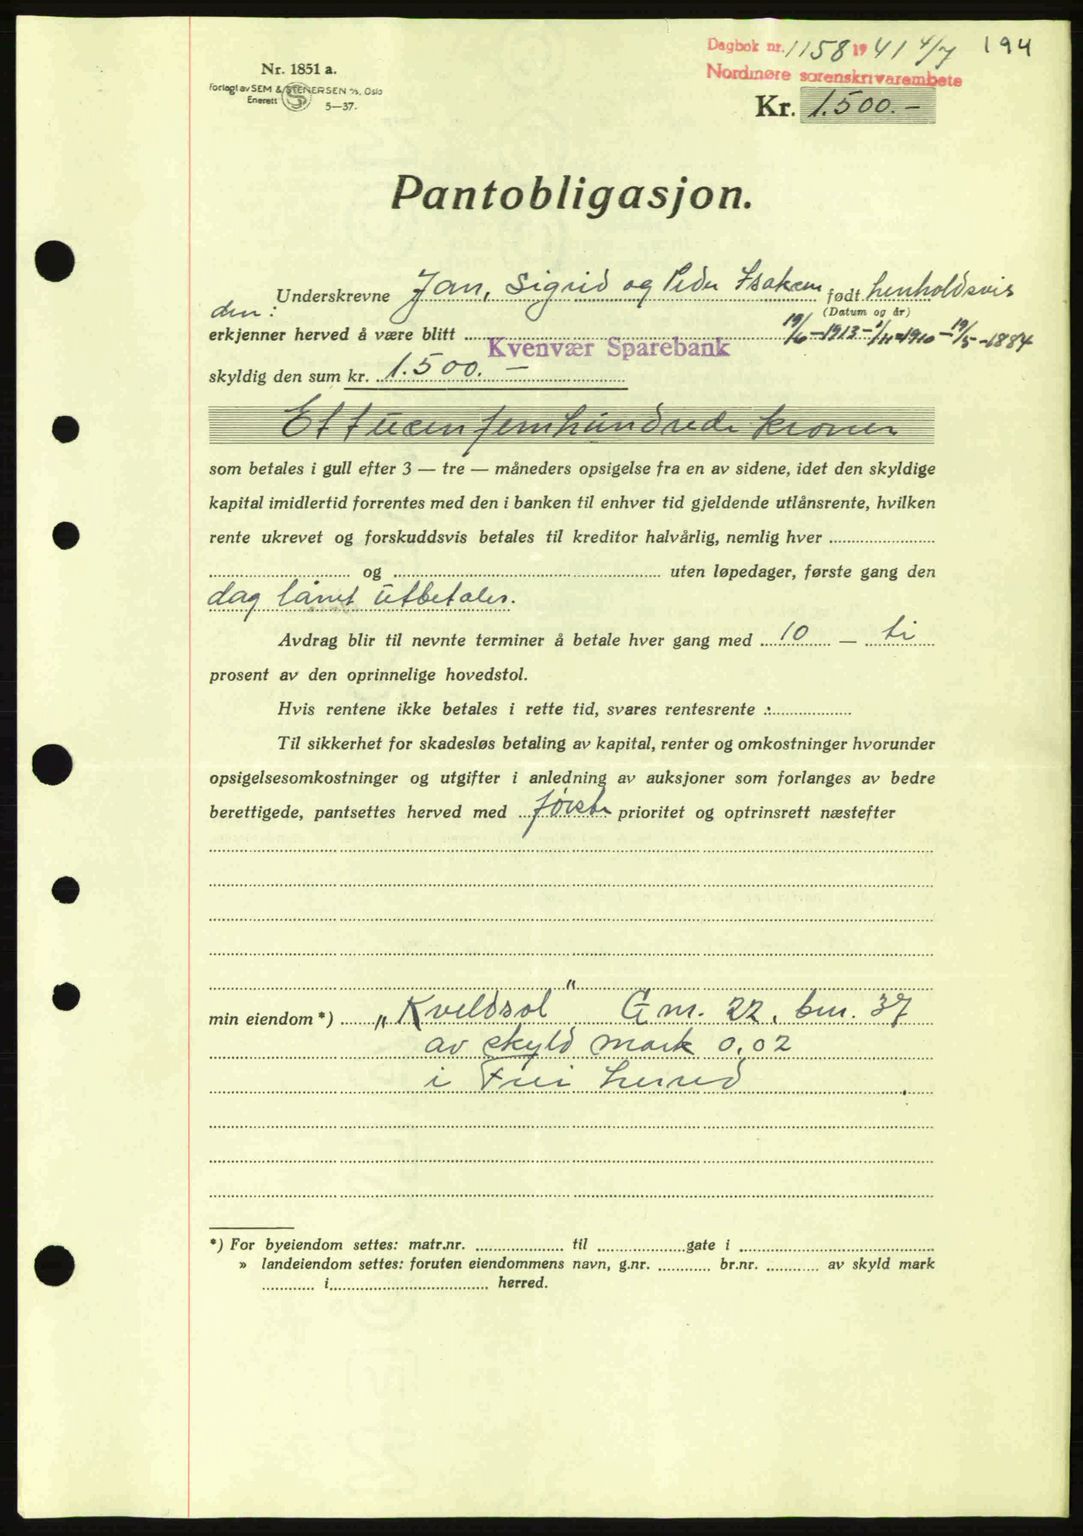 Dagbok nr. 1158 1941 4/7 194
Nordmøre sorenskrivarembete
Nr. 1851 a.
Forlagt av SEM & STENERSEN A/S, Oslo
Enerett 5—37.
Kr. 1.500.-
Pantobligasjon.
Underskrevne Jan, Sigrid og Peder Isaksen født henholdsvis
den: (Datum og år)
erkjenner herved å være blitt 19/6-1913-1/11-1910-19/5-1884
Kvenvær Sparebank
skyldig den sum kr. 1.500.-
Ettusenfemhundrede kroner
som betales i gull efter 3 — tre — måneders opsigelse fra en av sidene, idet den skyldige
kapital imidlertid forrentes med den i banken til enhver tid gjeldende utlånsrente, hvilken
rente ukrevet og forskuddsvis betales til kreditor halvårlig, nemlig hver
og uten løpedager, første gang den
dag lånet utbetales.
Avdrag blir til nevnte terminer å betale hver gang med 10 — ti
prosent av den oprinnelige hovedstol.
Hvis rentene ikke betales i rette tid, svares rentesrente :
Til sikkerhet for skadesløs betaling av kapital, renter og omkostninger hvorunder
opsigelsesomkostninger og utgifter i anledning av auksjoner som forlanges av bedre
berettigede, pantsettes herved med første prioritet og optrinsrett næstefter
min eiendom *) „Kveldsol" Gnr. 22, bnr. 37
av skyld mark 0,02
i Frei herred
*) For byeiendom settes: matr.nr. til gate i
» landeiendom settes: foruten eiendommens navn, g.nr. br.nr. av skyld mark
i herred.